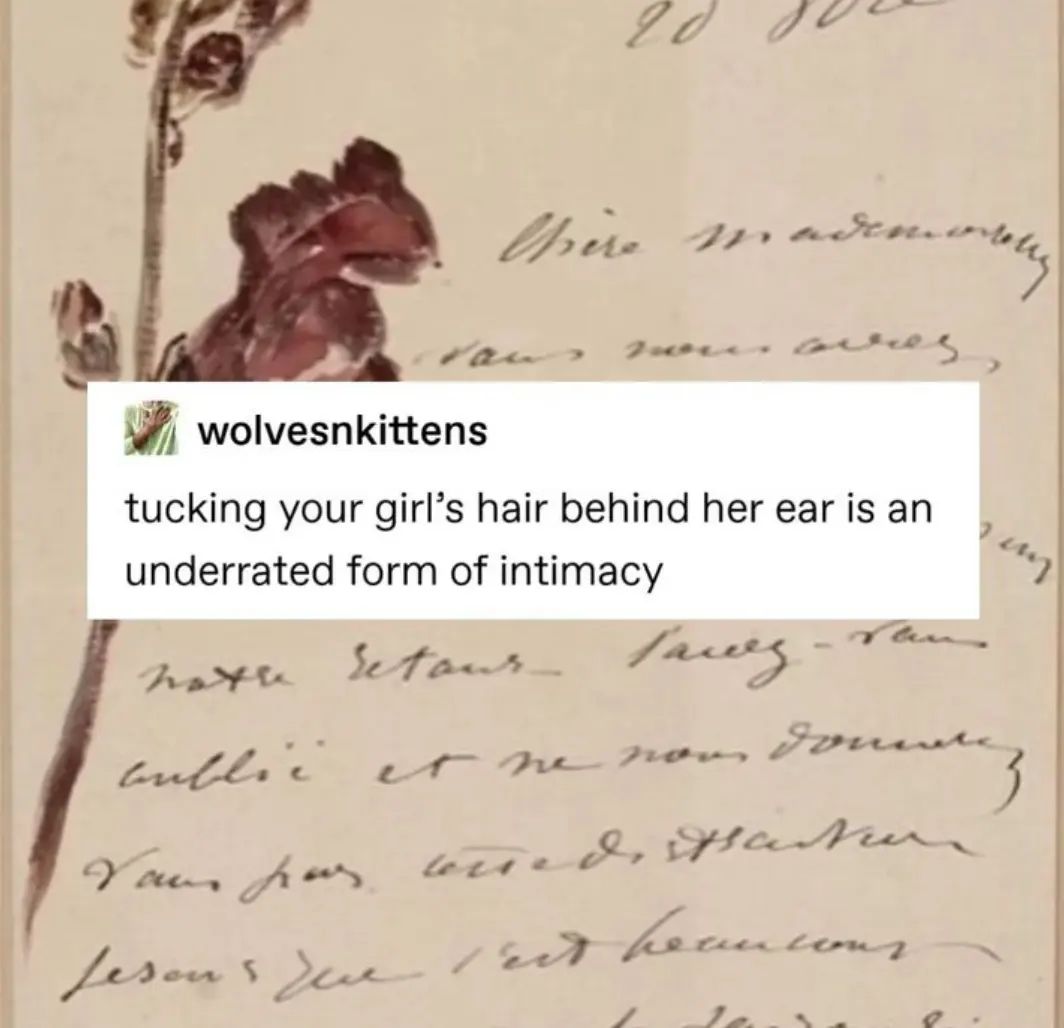 20
Chère mademoiselle
vous nous aviez
wolvesnkittens
tucking your girl's hair behind her ear is an
underrated form of intimacy
notre retour L'avez-vous
oublié et ne nous donnerez
vous pas cette distraction
que c'est beaucoup